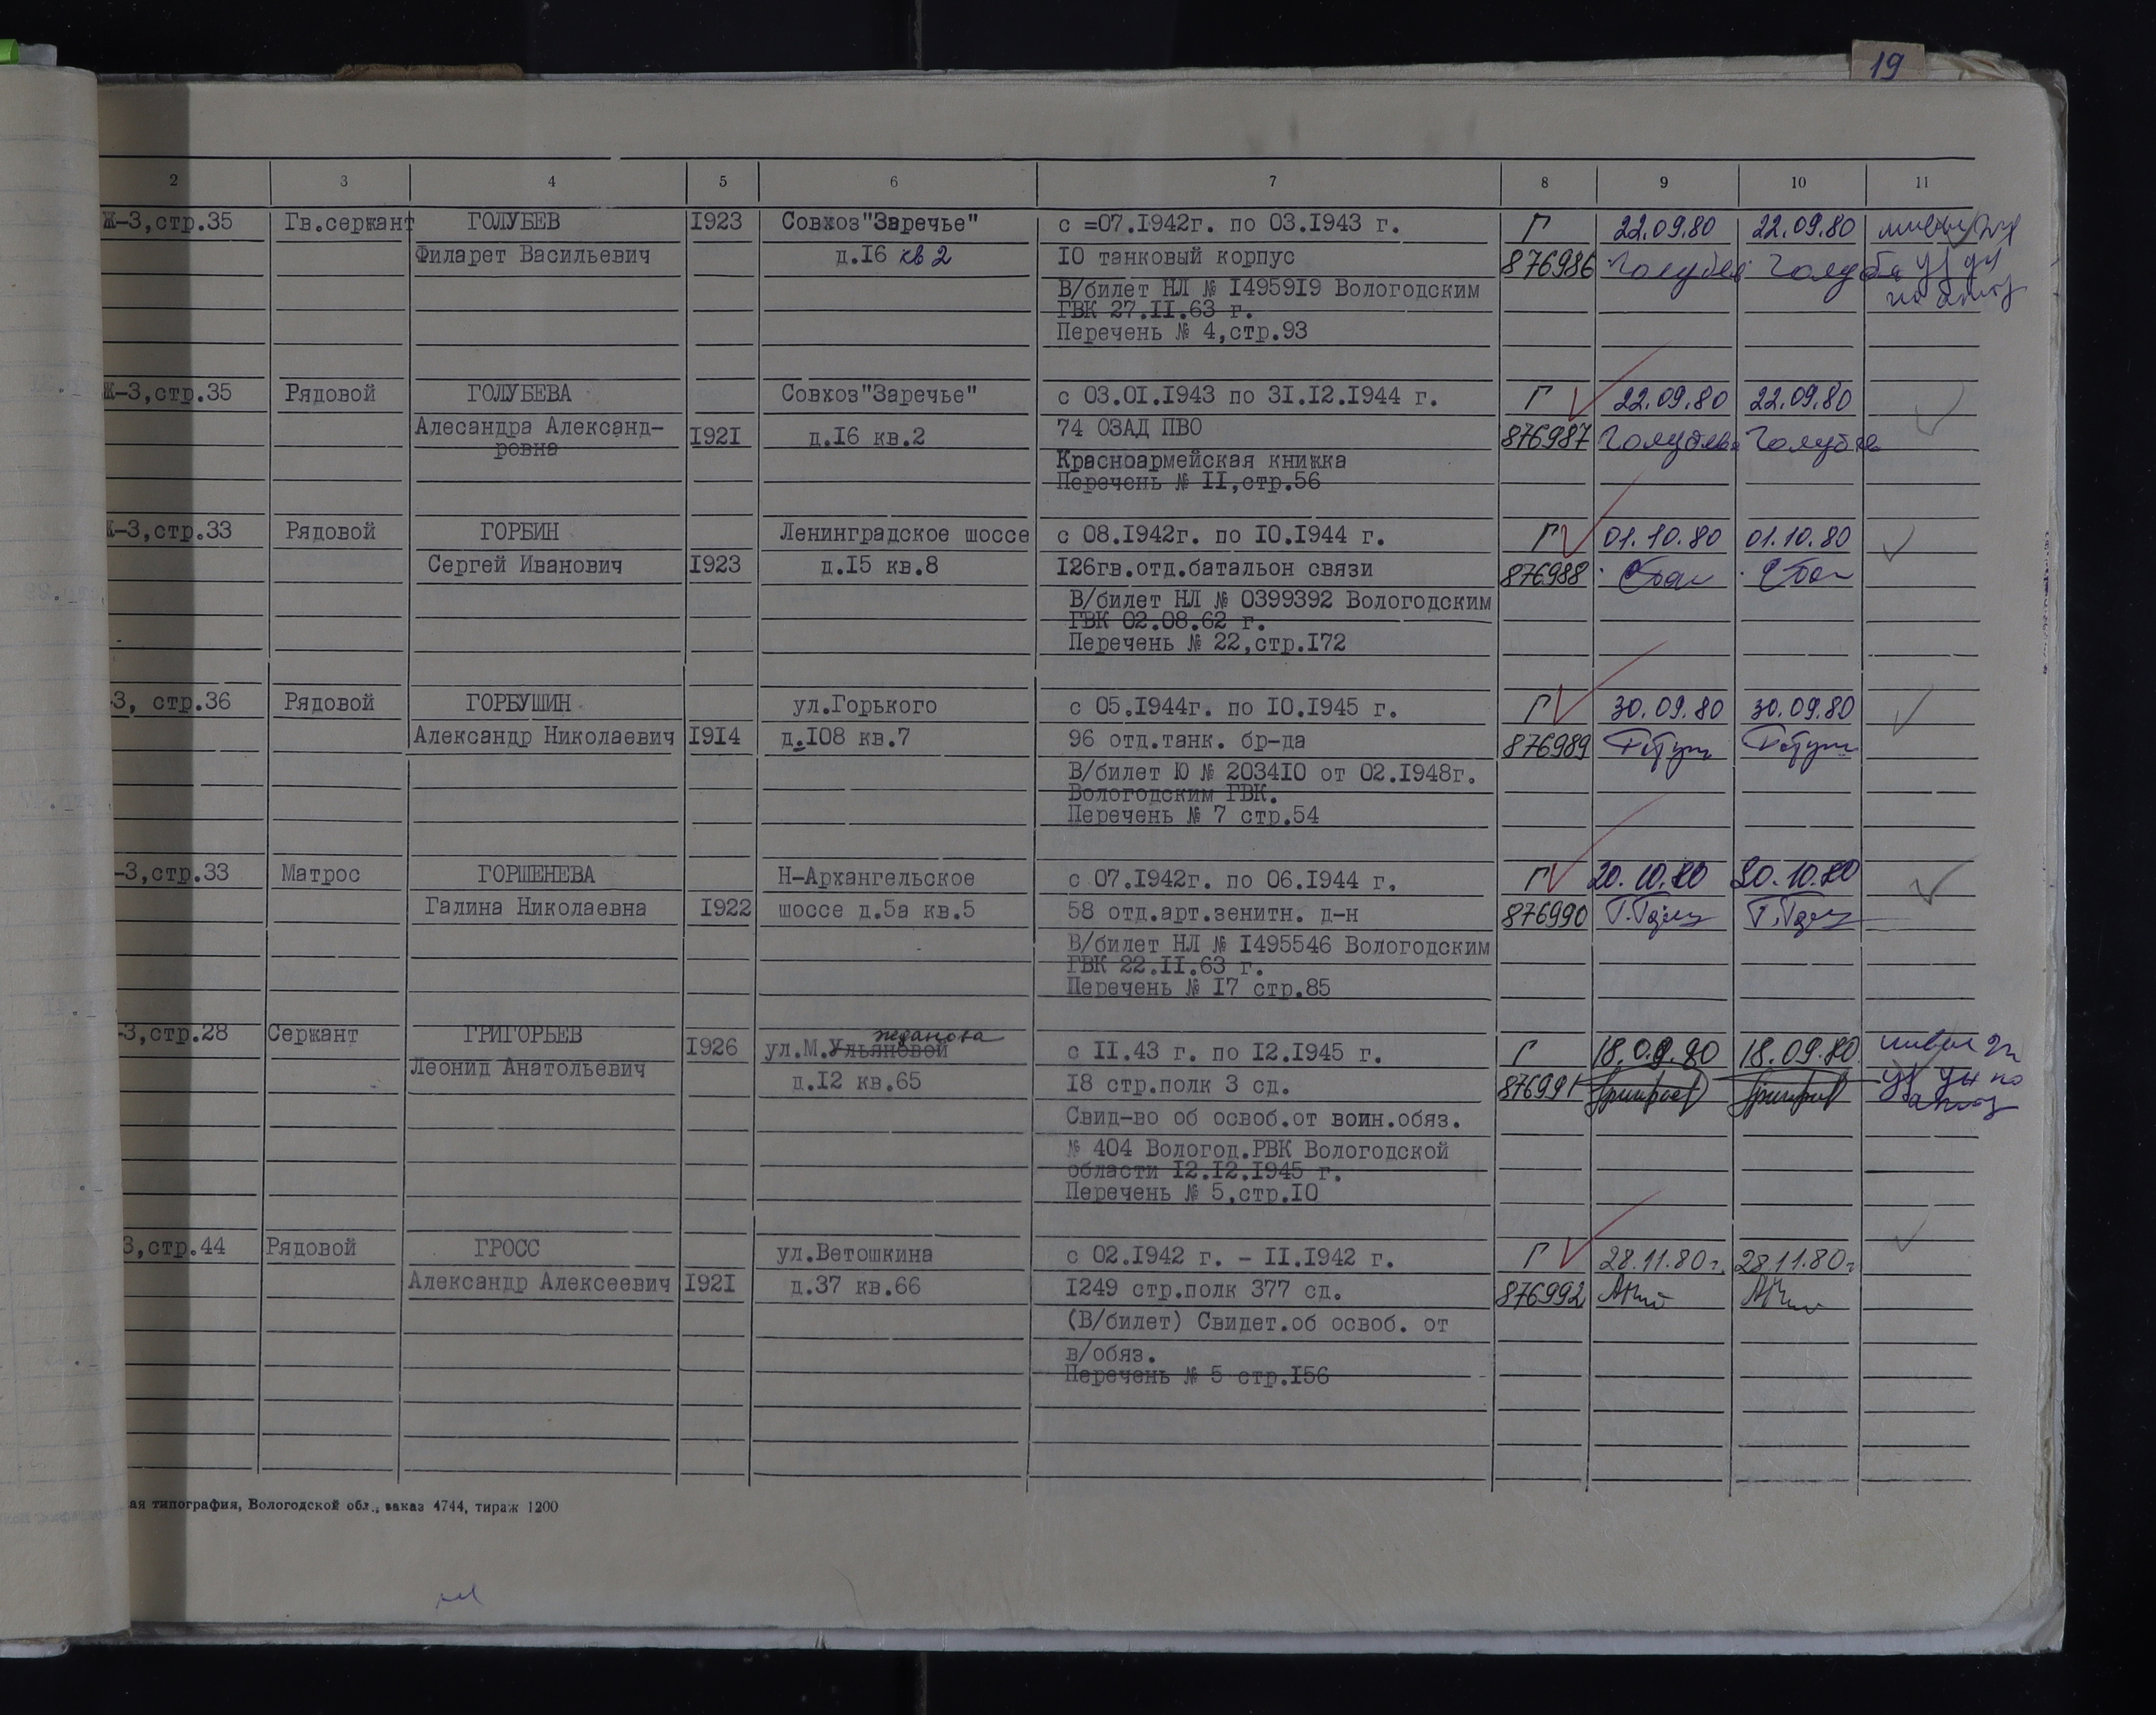 19
2 3 4 5 6 7 8 9 10 11
Ж-3,стр.35 Гв.сержант ГОЛУБЕВ I923 Совхоз"Заречье" с =07.I942г. по 03.I943 г. Г 22.09.80 22.09.80
Филарет Васильевич д.I6 кв 2 I0 танковый корпус 876986 Голубев Голубев
В/билет НЛ № I4959I9 Вологодским
ГВК 27.II.63 г.
Перечень № 4,стр.93
Ж-3,стр.35 Рядовой ГОЛУБЕВА Совхоз"Заречье" с 03.0I.I943 по 3I.I2.I944 г. Г 22.09.80 22.09.80
Алесандра Александ- I92I д.I6 кв.2 74 ОЗАД ПВО 876987 Голубева Голубева
ровна
Красноармейская книжка
Перечень № II,стр.56
Ж-3,стр.33 Рядовой ГОРБИН Ленинградское шоссе с 08.I942г. по I0.I944 г. Г 01.10.80 01.10.80
Сергей Иванович I923 д.I5 кв.8 I26гв.отд.батальон связи 876988
В/билет НЛ № 0399392 Вологодским
ГВК 02.08.62 г.
Перечень № 22,стр.I72
-3, стр.36 Рядовой ГОРБУШИН ул.Горького с 05.I944г. по I0.I945 г. Г 30.09.80 30.09.80
Александр Николаевич I9I4 д.I08 кв.7 96 отд.танк. бр-да 876989
В/билет Ю № 2034I0 от 02.I948г.
Вологодским ГВК.
Перечень № 7 стр.54
-3,стр.33 Матрос ГОРШЕНЕВА Н-Архангельское с 07.I942г. по 06.I944 г. Г 20.10.80 20.10.80
Галина Николаевна I922 шоссе д.5а кв.5 58 отд.арт.зенитн. д-н 876990
В/билет НЛ № I495546 Вологодским
ГВК 22.II.63 г.
Перечень № I7 стр.85
-3,стр.28 Сержант ГРИГОРЬЕВ I926 ул.М.Ульяновой жданова с II.43 г. по I2.I945 г. Г 18.09.80 18.09.80
Леонид Анатольевич д.I2 кв.65 I8 стр.полк 3 сд. 876991
Свид-во об освоб.от воин.обяз.
№ 404 Вологод.РВК Вологодской
области I2.I2.I945 г.
Перечень № 5,стр.I0
3,стр.44 Рядовой ГРОСС ул.Ветошкина с 02.I942 г. - II.I942 г. Г 28.11.80г. 28.11.80г
Александр Алексеевич I92I д.37 кв.66 I249 стр.полк 377 сд. 876992
(В/билет) Свидет.об освоб. от
в/обяз.
Перечень № 5 стр.I56
ая типография, Вологодской обл., заказ 4744, тираж 1200